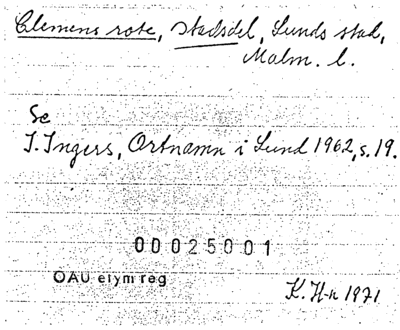 Clemens rote, stadsdel, Lunds stad,
Malm. l.
Se
I. Ingers, Ortnamn i Lund 1962, s. 19.
00025001
OAU etym reg
K. H-n 1971